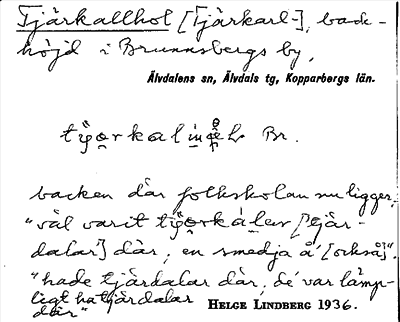 Tjärkallhol [Tjärkarl-], back-
höjd i Brunnsbergs by,
Älvdalens sn, Älvdals tg, Kopparbergs län.
Br.
backen där folkskolan nu ligger,
"väl varit [tjär-
dalar] där, en smedja å' [också]".
"hade tjärdalar där, de' var lämp-
ligt ha tjärdalar
där"
HELGE LINDBERG 1936.